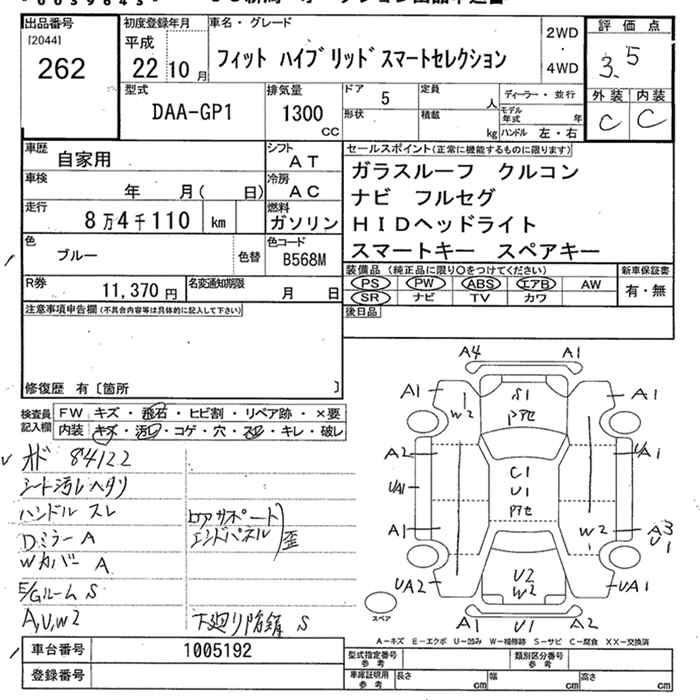 出品番号
[2044]
262
初度登録年月
平成
22 10 月
車名・グレード
フィット ハイブリッド スマートセレクション
2WD
4WD
評価点
3.5
外装 内装
C C
型式
DAA-GP1
排気量
1300
cc
ドア
5
形状
定員
人
積載
kg
ディーラー・並行
モデル年式 年
ハンドル 左・右
車歴
自家用
シフト
AT
車検
年 月( 日)
冷房
AC
走行
8万4千110 km
燃料
ガソリン
色
ブルー
色替
色コード
B568M
R券
11,370 円
名変通知期限
月 日
セールスポイント(正常に機能するものに限ります)
ガラスルーフ クルコン
ナビ フルセグ
HIDヘッドライト
スマートキー スペアキー
装備品 (純正品に限り〇をつけてください)
PS PW ABS エアB AW
SR ナビ TV カワ
新車保証書
有・無
後日品
注意事項申告欄(不具合内容等は具体的に記入して下さい)
修復歴 有〔箇所 〕
検査員記入欄
FW キズ・飛石・ヒビ割・リペア跡・×要
内装 キズ・汚れ・コゲ・穴・スレ・キレ・破レ
84122
シート汚レ ヘタリ
ハンドル スレ
Dミラー A
Wカバー A
E/Gルーム S
A,U,W2
リアサポート
エンドパネル
歪
下廻り防錆 S
A4 A1
A1 S1 A1
W2 Pアセ
A2 UA1
UA1 C1
U1
Pアセ
A1 W2 A3
U1
UA2 U2 UA1
W2
スペア
A1 U1 A2
A-キズ E-エクボ U-凹み W-補修跡 S-サビ C-腐食 XX-交換済
車台番号
1005192
登録番号
型式指定番号
参考
類別区分番号
参考
車庫証明用
参考
長さ cm
幅 cm
高さ cm